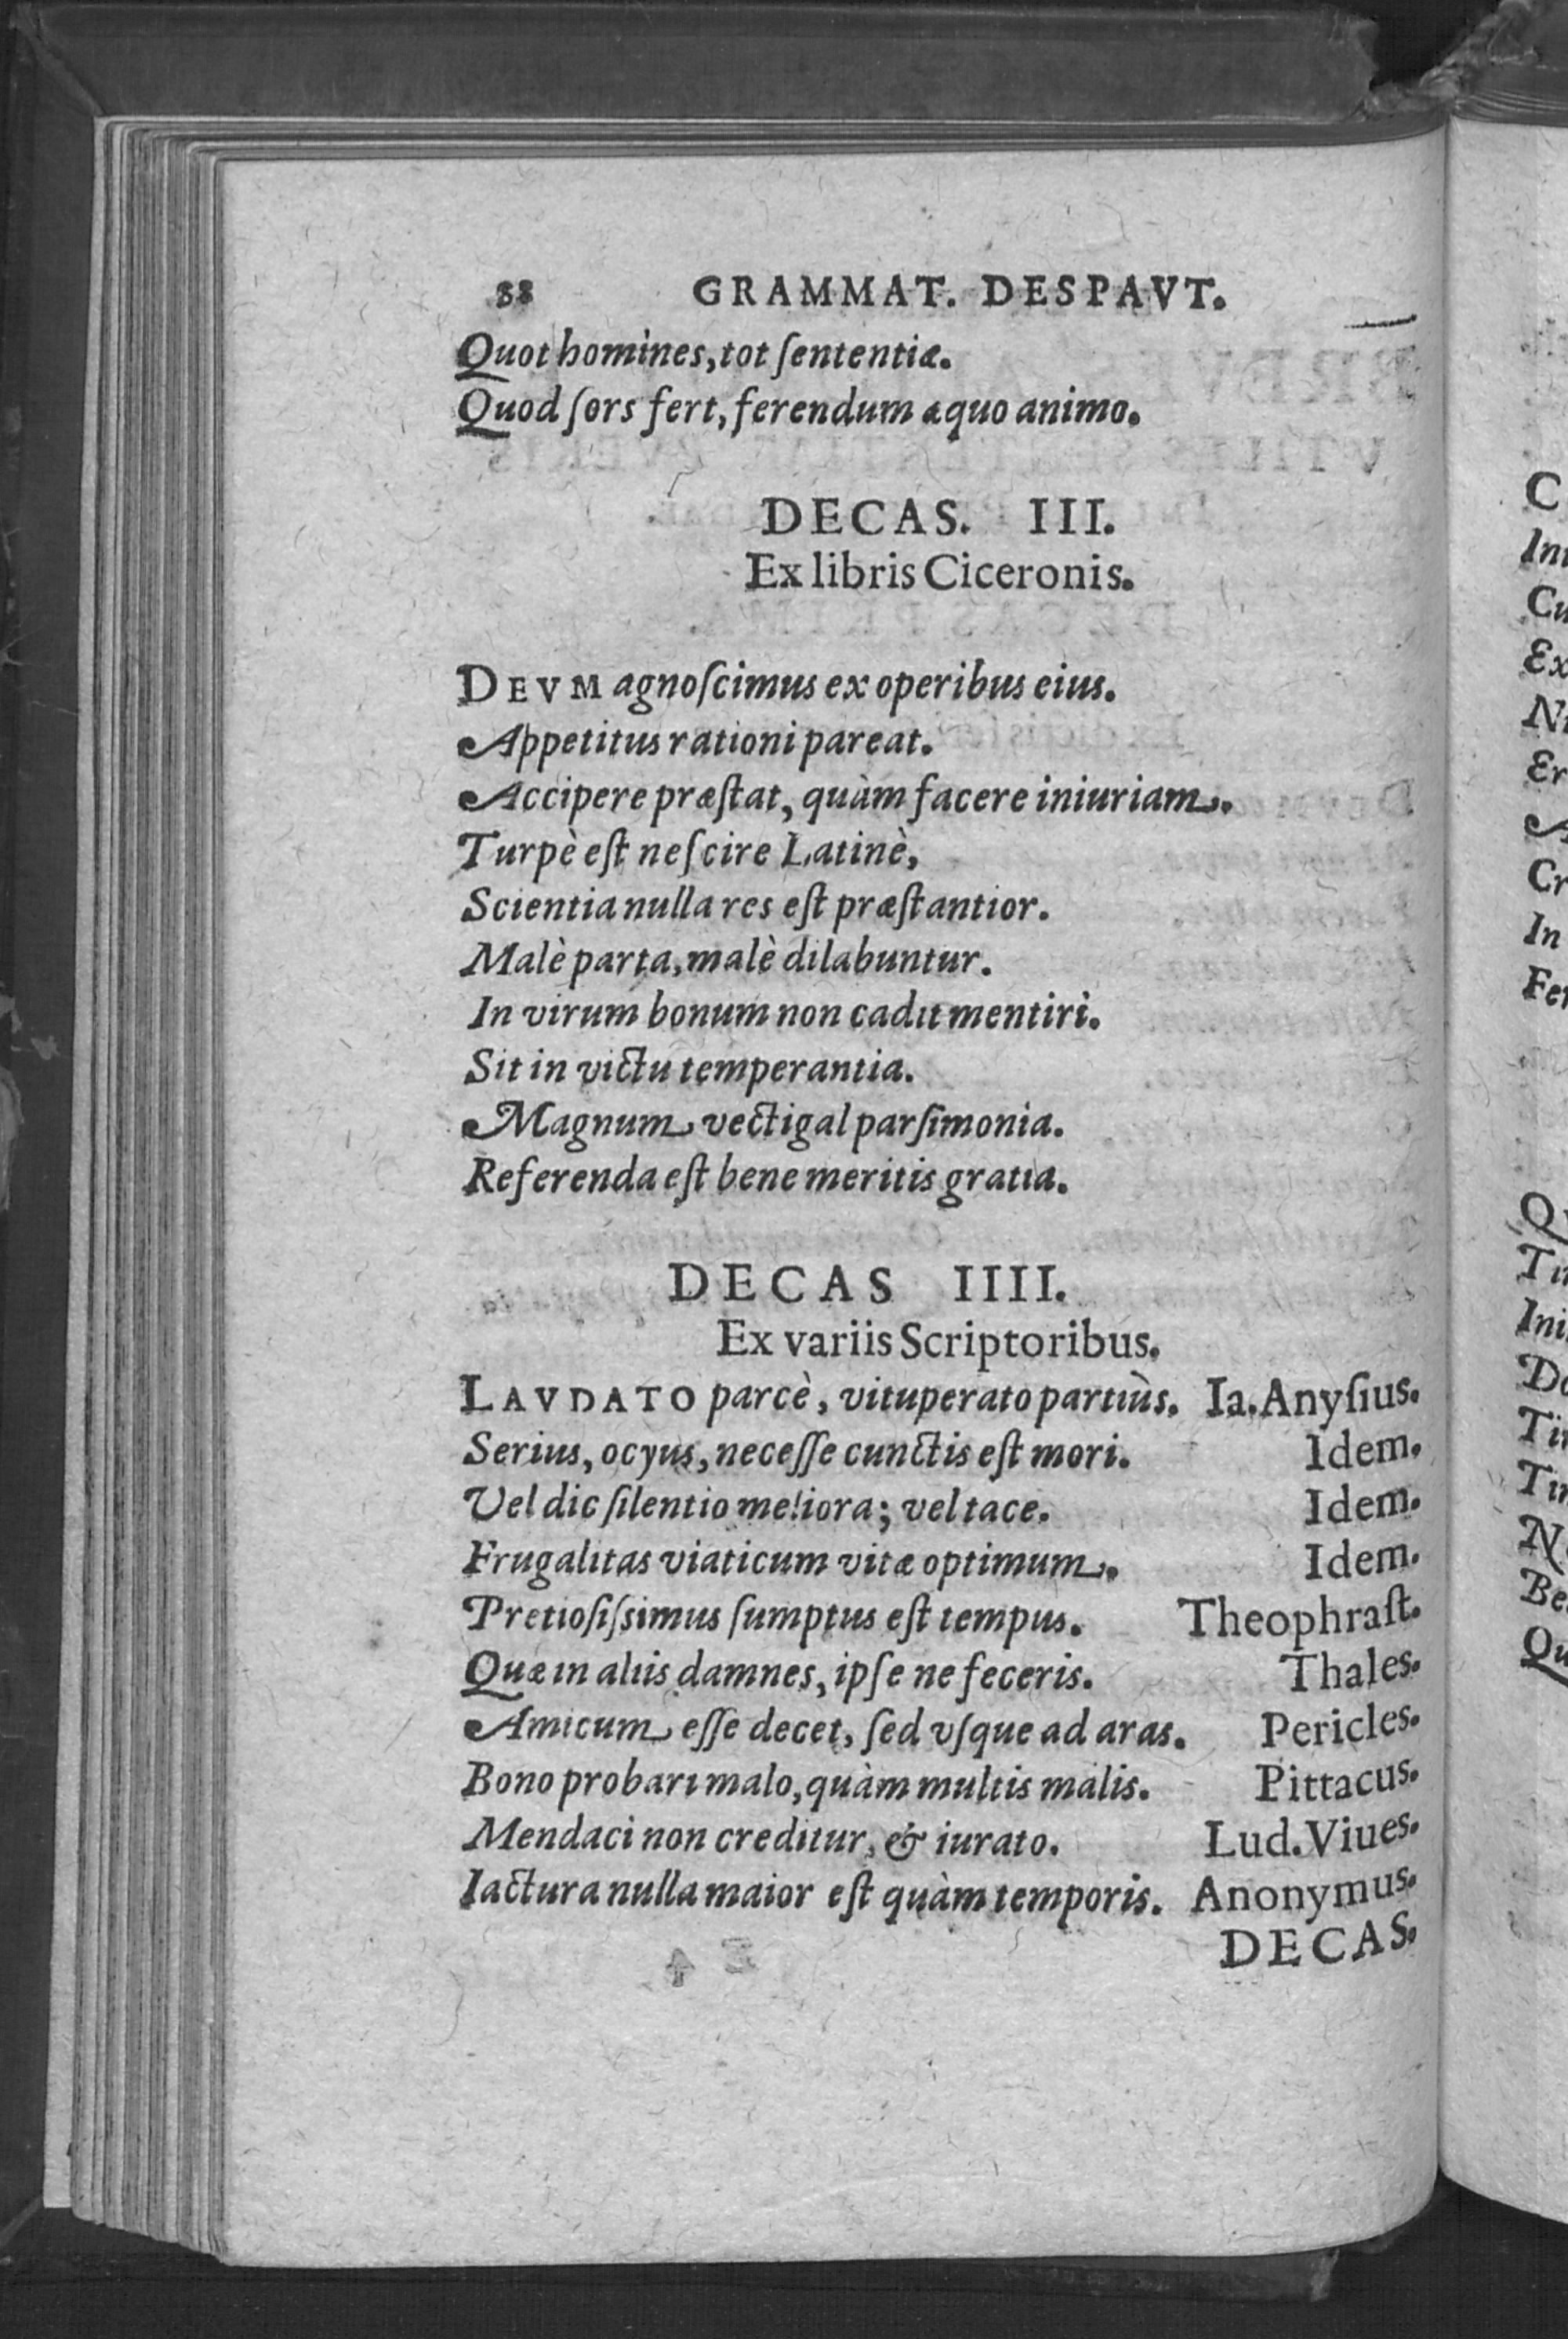 88 GRAMMAT. DESPAVT.
Quot homines, tot ſententiæ.
Quod ſors fert, ferendum æquo animo.
DECAS. III.
Ex libris Ciceronis.
DEVM agnoſcimus ex operibus eius.
Appetitus rationi pareat.
Accipere præſtat, quàm facere iniuriam.
Turpè eſt neſcire Latinè,
Scientia nulla res eſt præſtantior.
Malè parta, malè dilabuntur.
In virum bonum non cadit mentiri.
Sit in victu temperantia.
Magnum vectigal parſimonia.
Referenda eſt bene meritis gratia.
DECAS IIII.
Ex variis Scriptoribus.
LAVDATO parcè, vituperato partiùs. Ia. Anyſius.
Serius, ocyus, neceſſe cunctis eſt mori. Idem.
Vel dic ſilentio meliora; vel tace. Idem.
Frugalitas viaticum vitæ optimum. Idem.
Pretioſiſsimus ſumptus eſt tempus. Theophraſt.
Quæ in aliis damnes, ipſe ne feceris. Thales.
Amicum eſſe decet, ſed vſque ad aras. Pericles.
Bono probari malo, quàm multis malis. Pittacus.
Mendaci non creditur, & iurato. Lud. Viues.
Iactura nulla maior eſt quàm temporis. Anonymus.
DECAS.
C
In
Cu
Ex
Er
Cr
In
Fe
Ini
Be
Qu